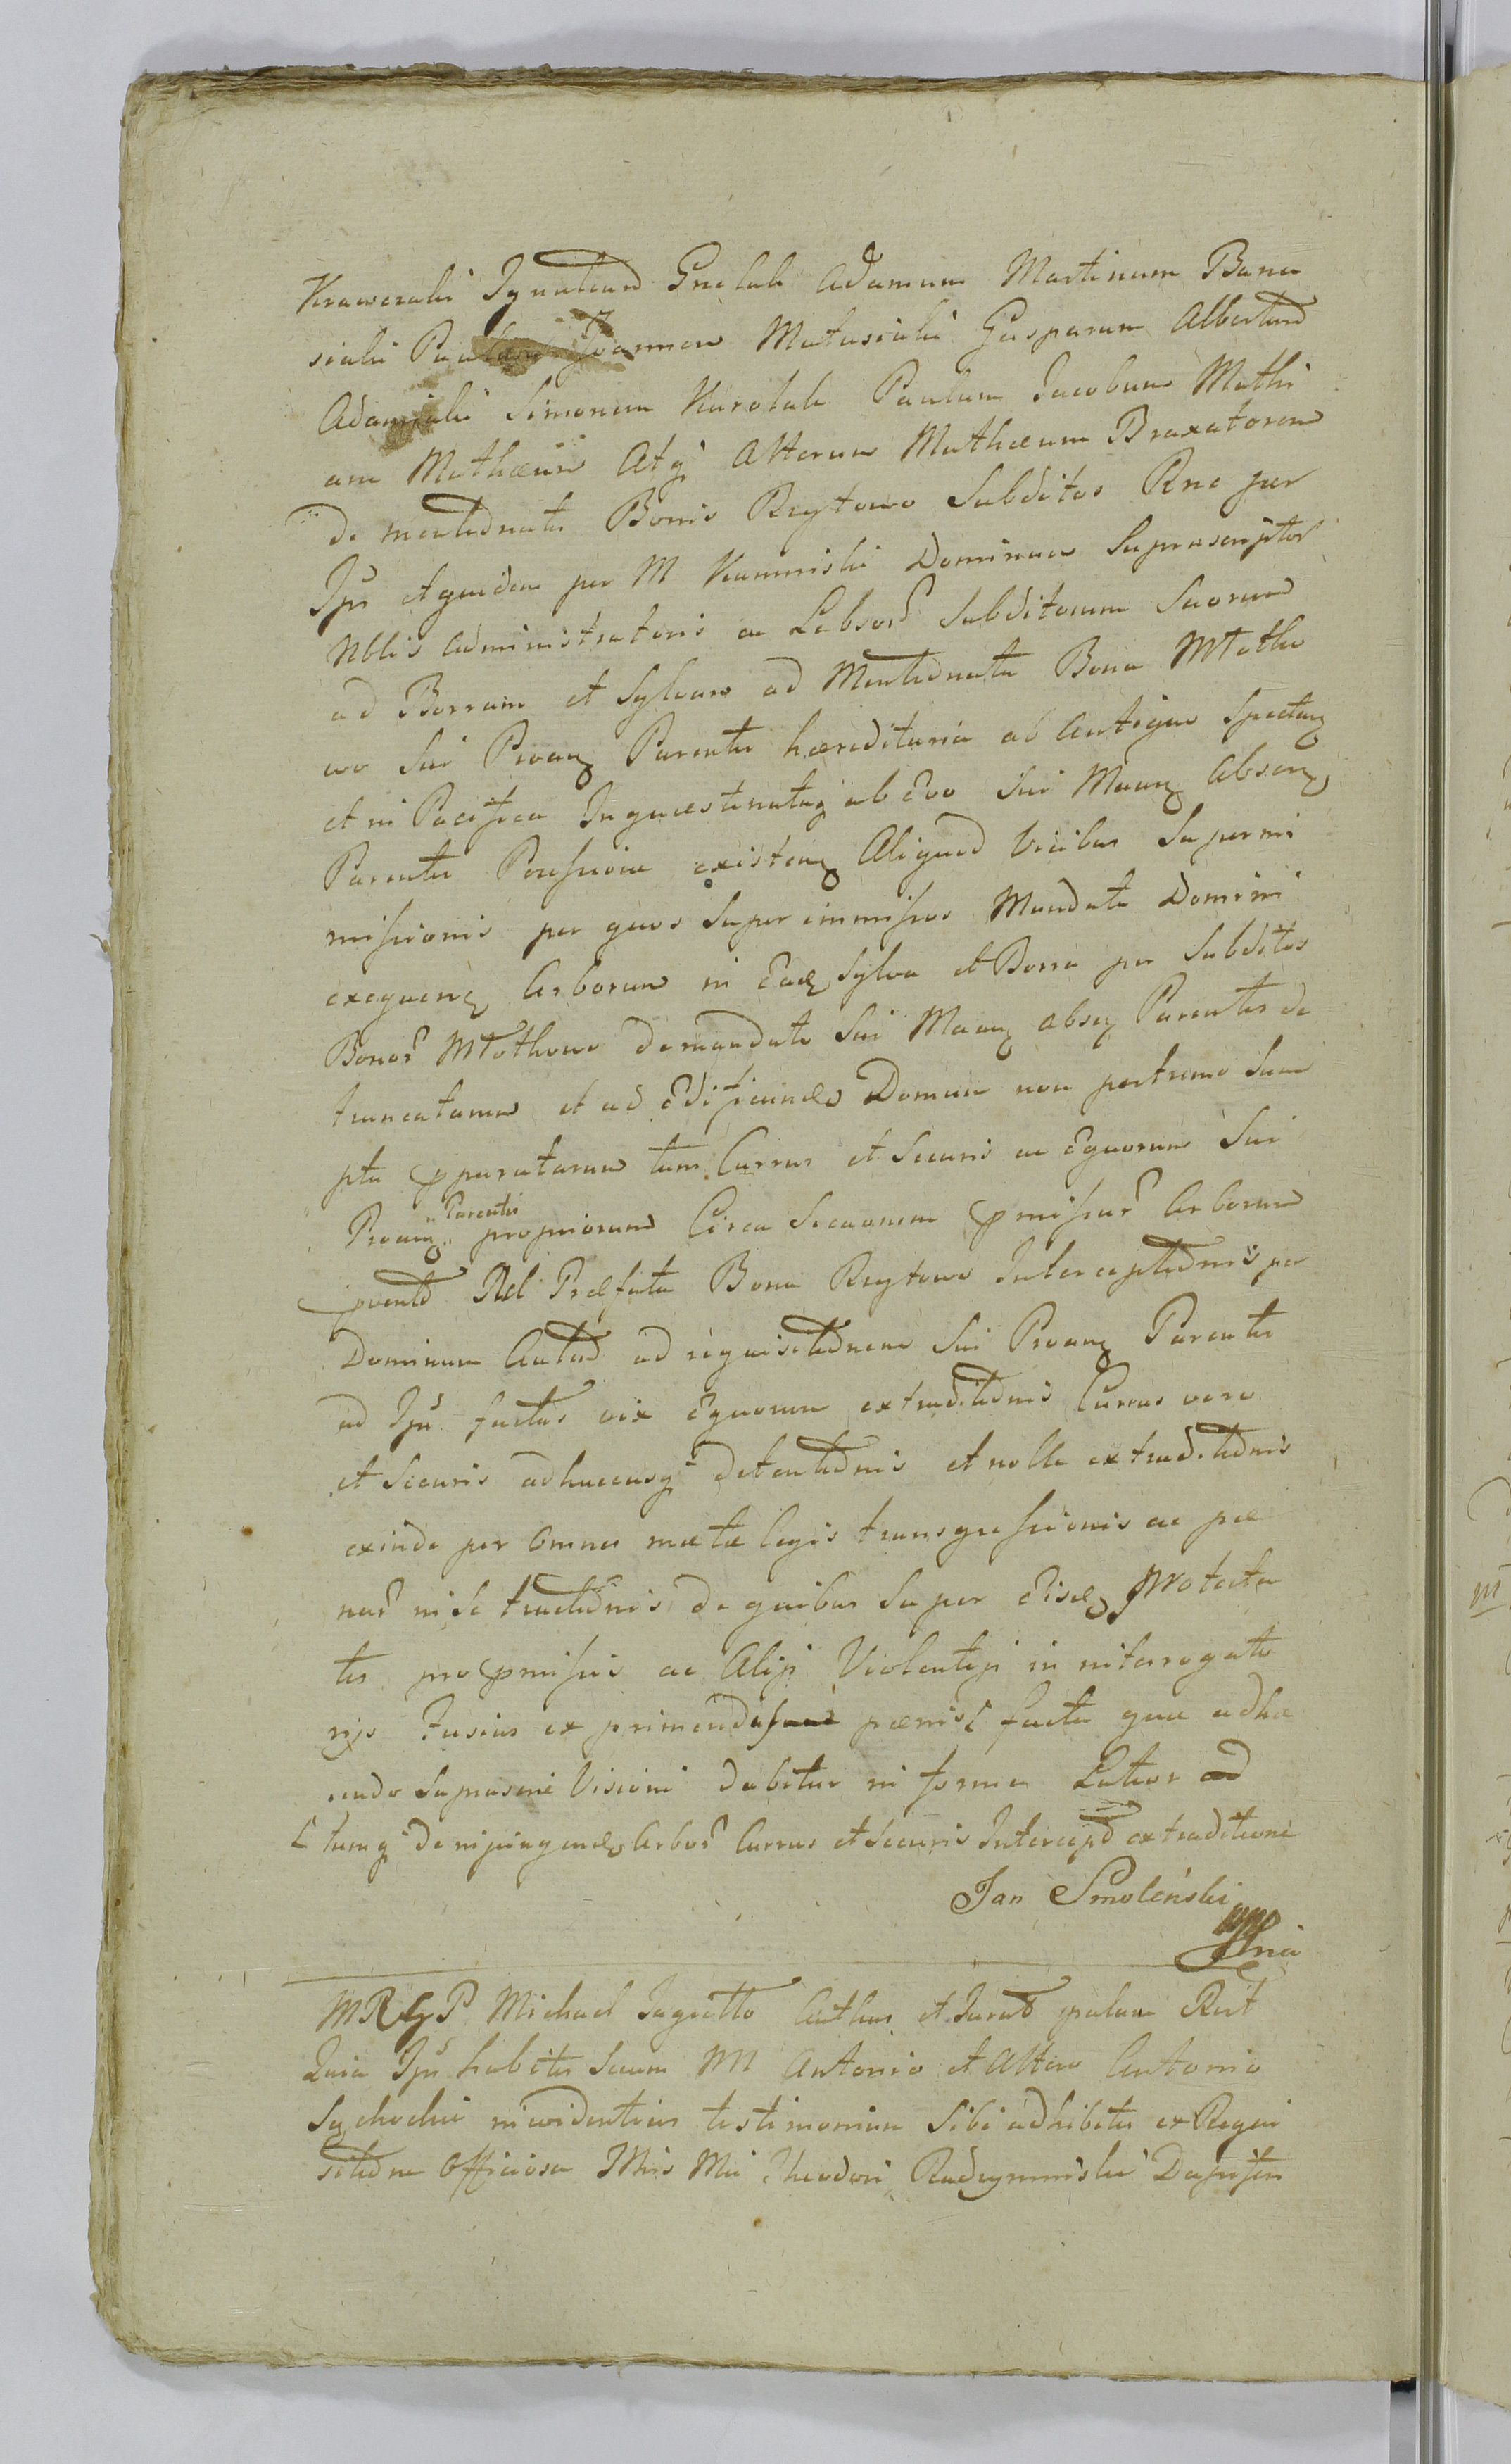 Krawczaki Ignatium Gnelak Adamum Martinum Bana
siaki Paulum Joannem Matusiaki Gasparum Albertum
Adamiaki Simonem Karolak Paulum Jacobum Mathi
am Mathæum Atq Alterum Mathæum Braxatorem
de mentionatis Bonis Reytowo Subditos Rne per
Ips et quidem per M Kaminski Dominum Suprascriptor
Nblis Administratoris ac Labsor Subditorum Suorum
ad Borram et Sylvam ad Mentionata Bona Mlotko
wo Sui Proang Parentis hæreditaria ab Antiquo Spectang
et in Pacifica Inquæstionatag ab Evo Sui Maang Abseng
Parentis Possessione existeng Aliquod Vicibus Supermi
missionis per quos Super immissos Mandata Domini
exequeng Arborum in Eadg Sylva et Borra per Subditos
Bonor Mlotkowo de mandato Sui Maang abseg Parentis de
truncatarum et ad Edificandg Domum non postremo Sum
ptu pparatarum tum Currus et Securis ac Equorum Sui
Proang Parentis propriorum Circa Secaorem pmissar Arborum
pvento Ad Præfata Bona Reytowo Interceptionis per
Dominum Actum ad requisitionem Sui Proang Parentis
ad Ips factas vix Equorum extraditionis Currus vero
et Securis adhucusq detentionis et nolle extraditionis
exinde per Omnes metæ legis transgressionis ac pæ
nar in Se tractionis de quibus Super Eisdg Protesta
tis pro pmissis ac Alijs Violentijs in interrogato
rijs Fusius exprimendis pænis facta qua adhæ
rendo Suprascrie Visioni dabitur in forma Latior
tumq de injungendg Arbor Currus et Securis Intercept extraditione
Jan Smoleński
mpria
MRGP Michael Jagiełło Authus et Jurat palam Rect
Quia Ips habitis Secum MM Antonio et Altero Antonio
Sychocki in evidentius testimonium Sibi adhibitis ex Requi
sitione Officiosa Mis Mi Theodori Radzyminski Dapiferi